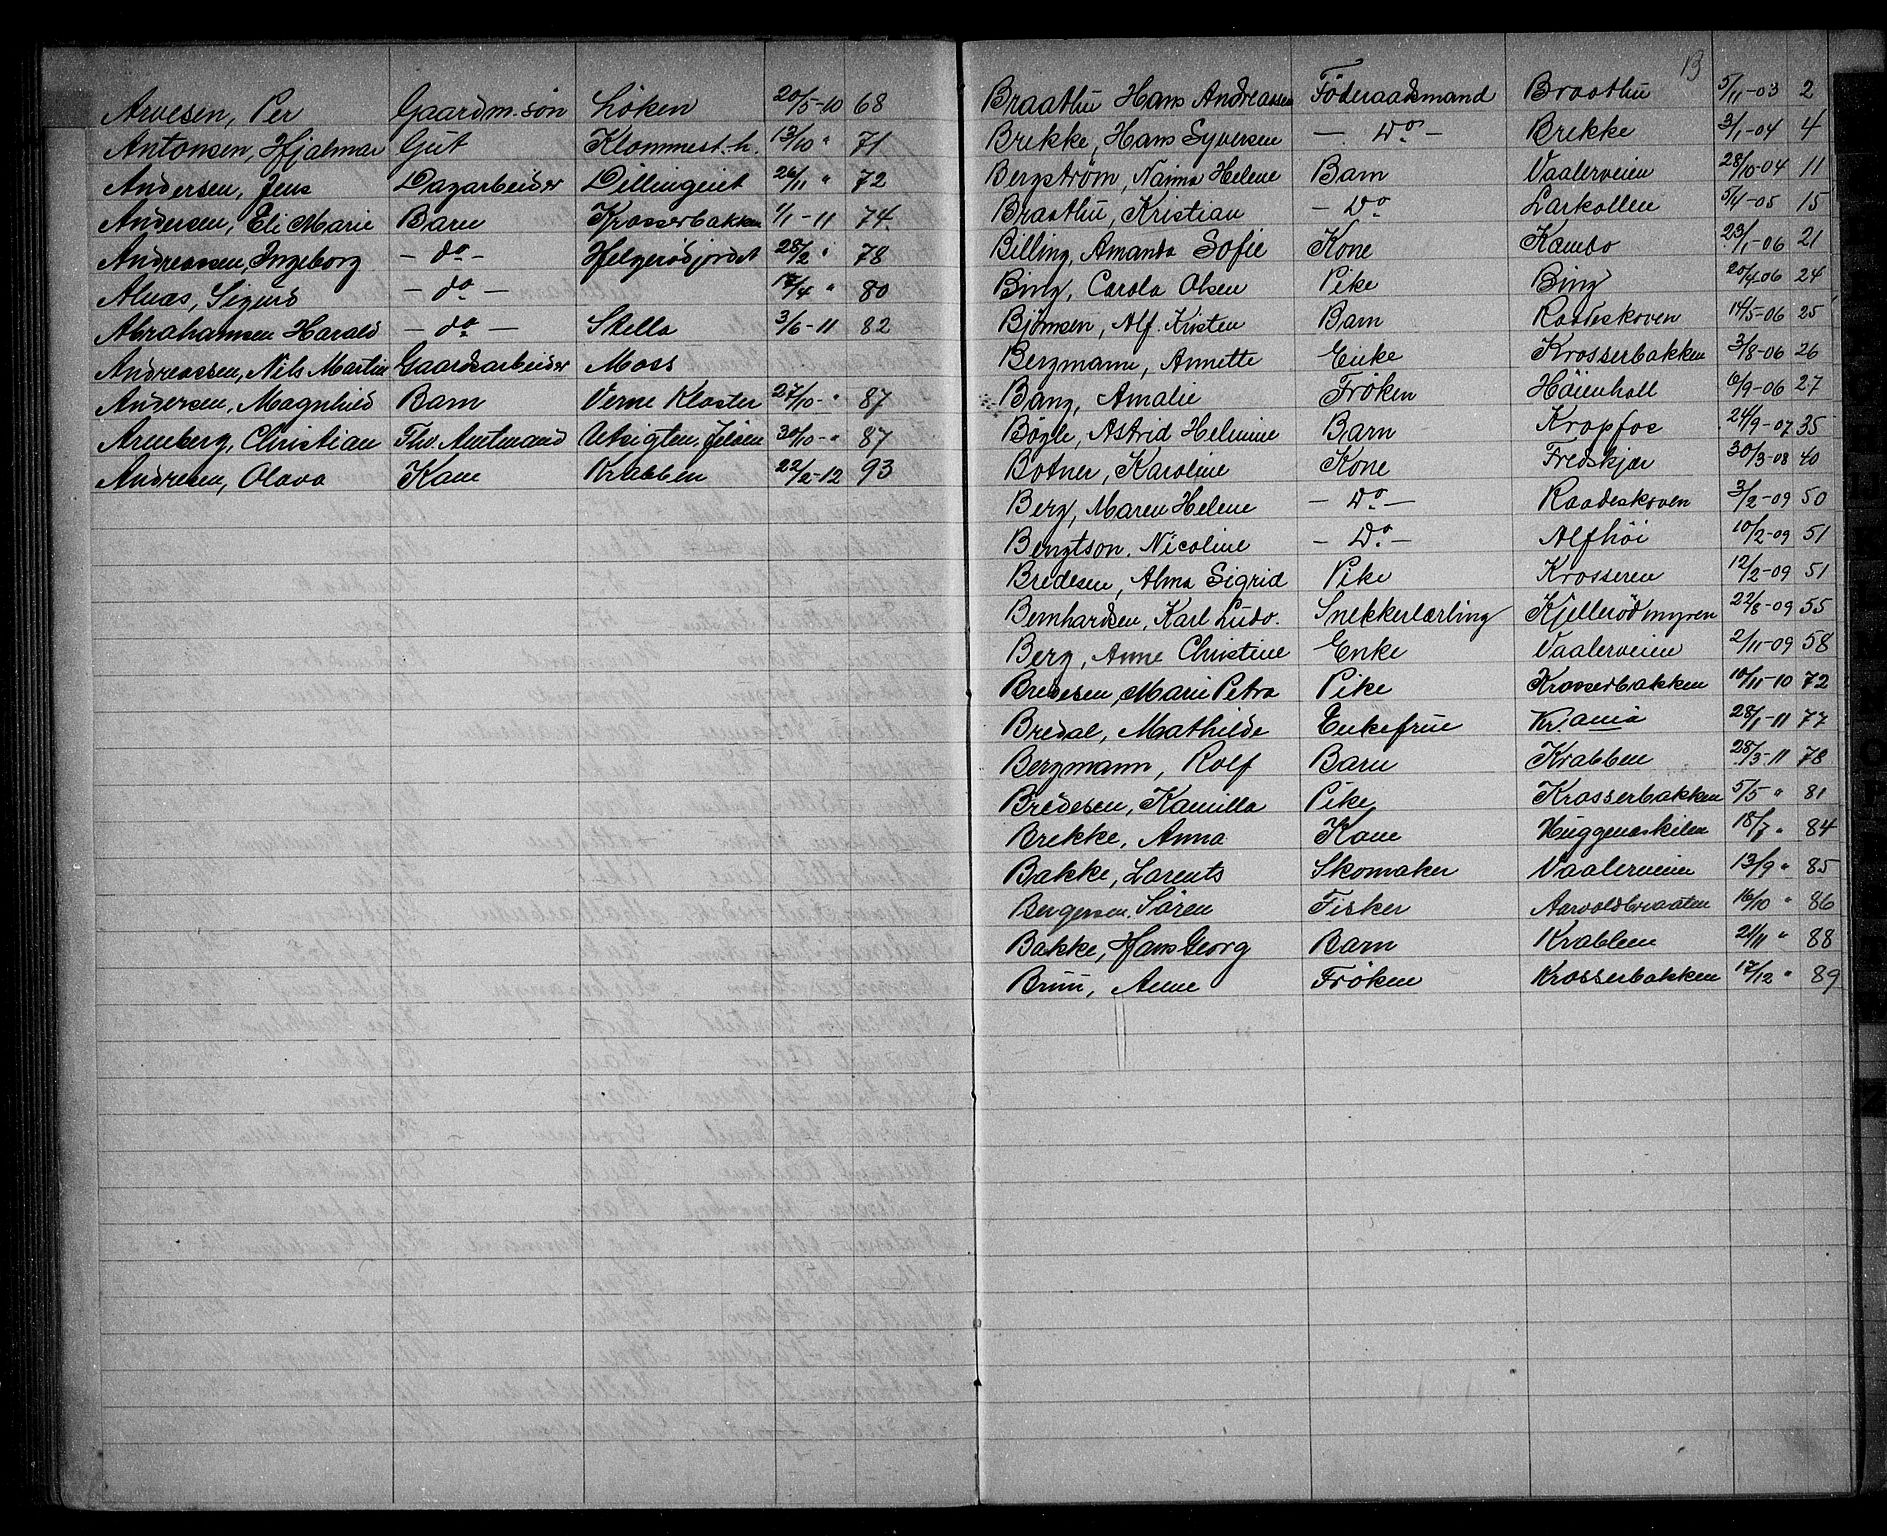 Arvesen, Per Gaardm. søn Løken 20/5-10 68
Antonsen, Hjalmar Gut Klommest.h. 13/10 " 71
Andersen, Jens Dagarbeider Dillingeiet 26/11 " 72
Andersen, Eli Marie Barn Krosserbakken 1/1-11 74
Andreassen, Ingeborg - do - Helgerødjordet 28/2 " 78
Alnæs, Sigurd - do - 17/4 " 80
Abrahamsen Harald - do - Stella 3/6-11 82
Andreassen, Nils Martin Gaardsarbeider Moss
Andersen, Magnhild Barn Verne Kloster 27/10- " 87
Arneberg, Christian Fhv. Amtmand Utsigten, Jeløen 30/10- " 87
Andresen, Olava Kone Krabben 22/2-12 93
B
Braathu Hans Andreassen Föderaadsmand Braathu 5/11-03 2
Brekke, Hans Syversen - Do - Brekke 3/1-04 4
Bergstrøm, Naima Helene Barn Vaalerveien 28/10-04 11
Braathu, Kristian - Do Larkollen 5/4-05 15
Billing, Amanda Sofie Kone Kambo 23/1-06 21
Bing, Carola Olsen Pike Bing 20/4-06 24
Bjørnsen, Alf Kirsten Barn Raadeskoven 14/5-06 25
Bergmann, Annette Enke Krosserbakken 3/8-06 26
Bang, Amalie Frøken Høienhall 6/9-06 27
Bøgle, Astrid Helmine Barn Kropfos 24/9-07 35
Botner, Karoline Kone Fredskjær 30/3-08 40
Berg, Maren Helene - Do - Raadeskoven 3/2-09 50
Bengtson, Nicoline - Do - Alfhøi 10/2-09 51
Bredesen, Alma Sigrid Pike Krosseren 12/2-09 51
Bernhardsen, Karl Ludv. Snekkerlærling Kjellerødmyren 22/8-09 55
Berg, Anne Christine Enke Vaalerveien 2/11-09 58
Bredesen, Marie Petra Pike Krosserbakken 10/11-10 72
Bredal, Mathilde Enkefrue Kr.ania 28/1-11 77
Bergmann, Rolf Barn Krabben 28/3-11 78
Bredesen, Kamilla Pike Krosserbakken 5/5 " 81
Brekke, Anna Kone Huggenæskilen 18/7 " 84
Bakke, Larents Skomaker Vaalerveien 13/9 " 85
Bergersen, Søren Fisker Aarvoldbraaten 16/10 " 86
Bakke, Hans Georg Barn Krabben 21/11 " 88
Bruu, Anne Frøken Krosserbakken 17/12 " 89